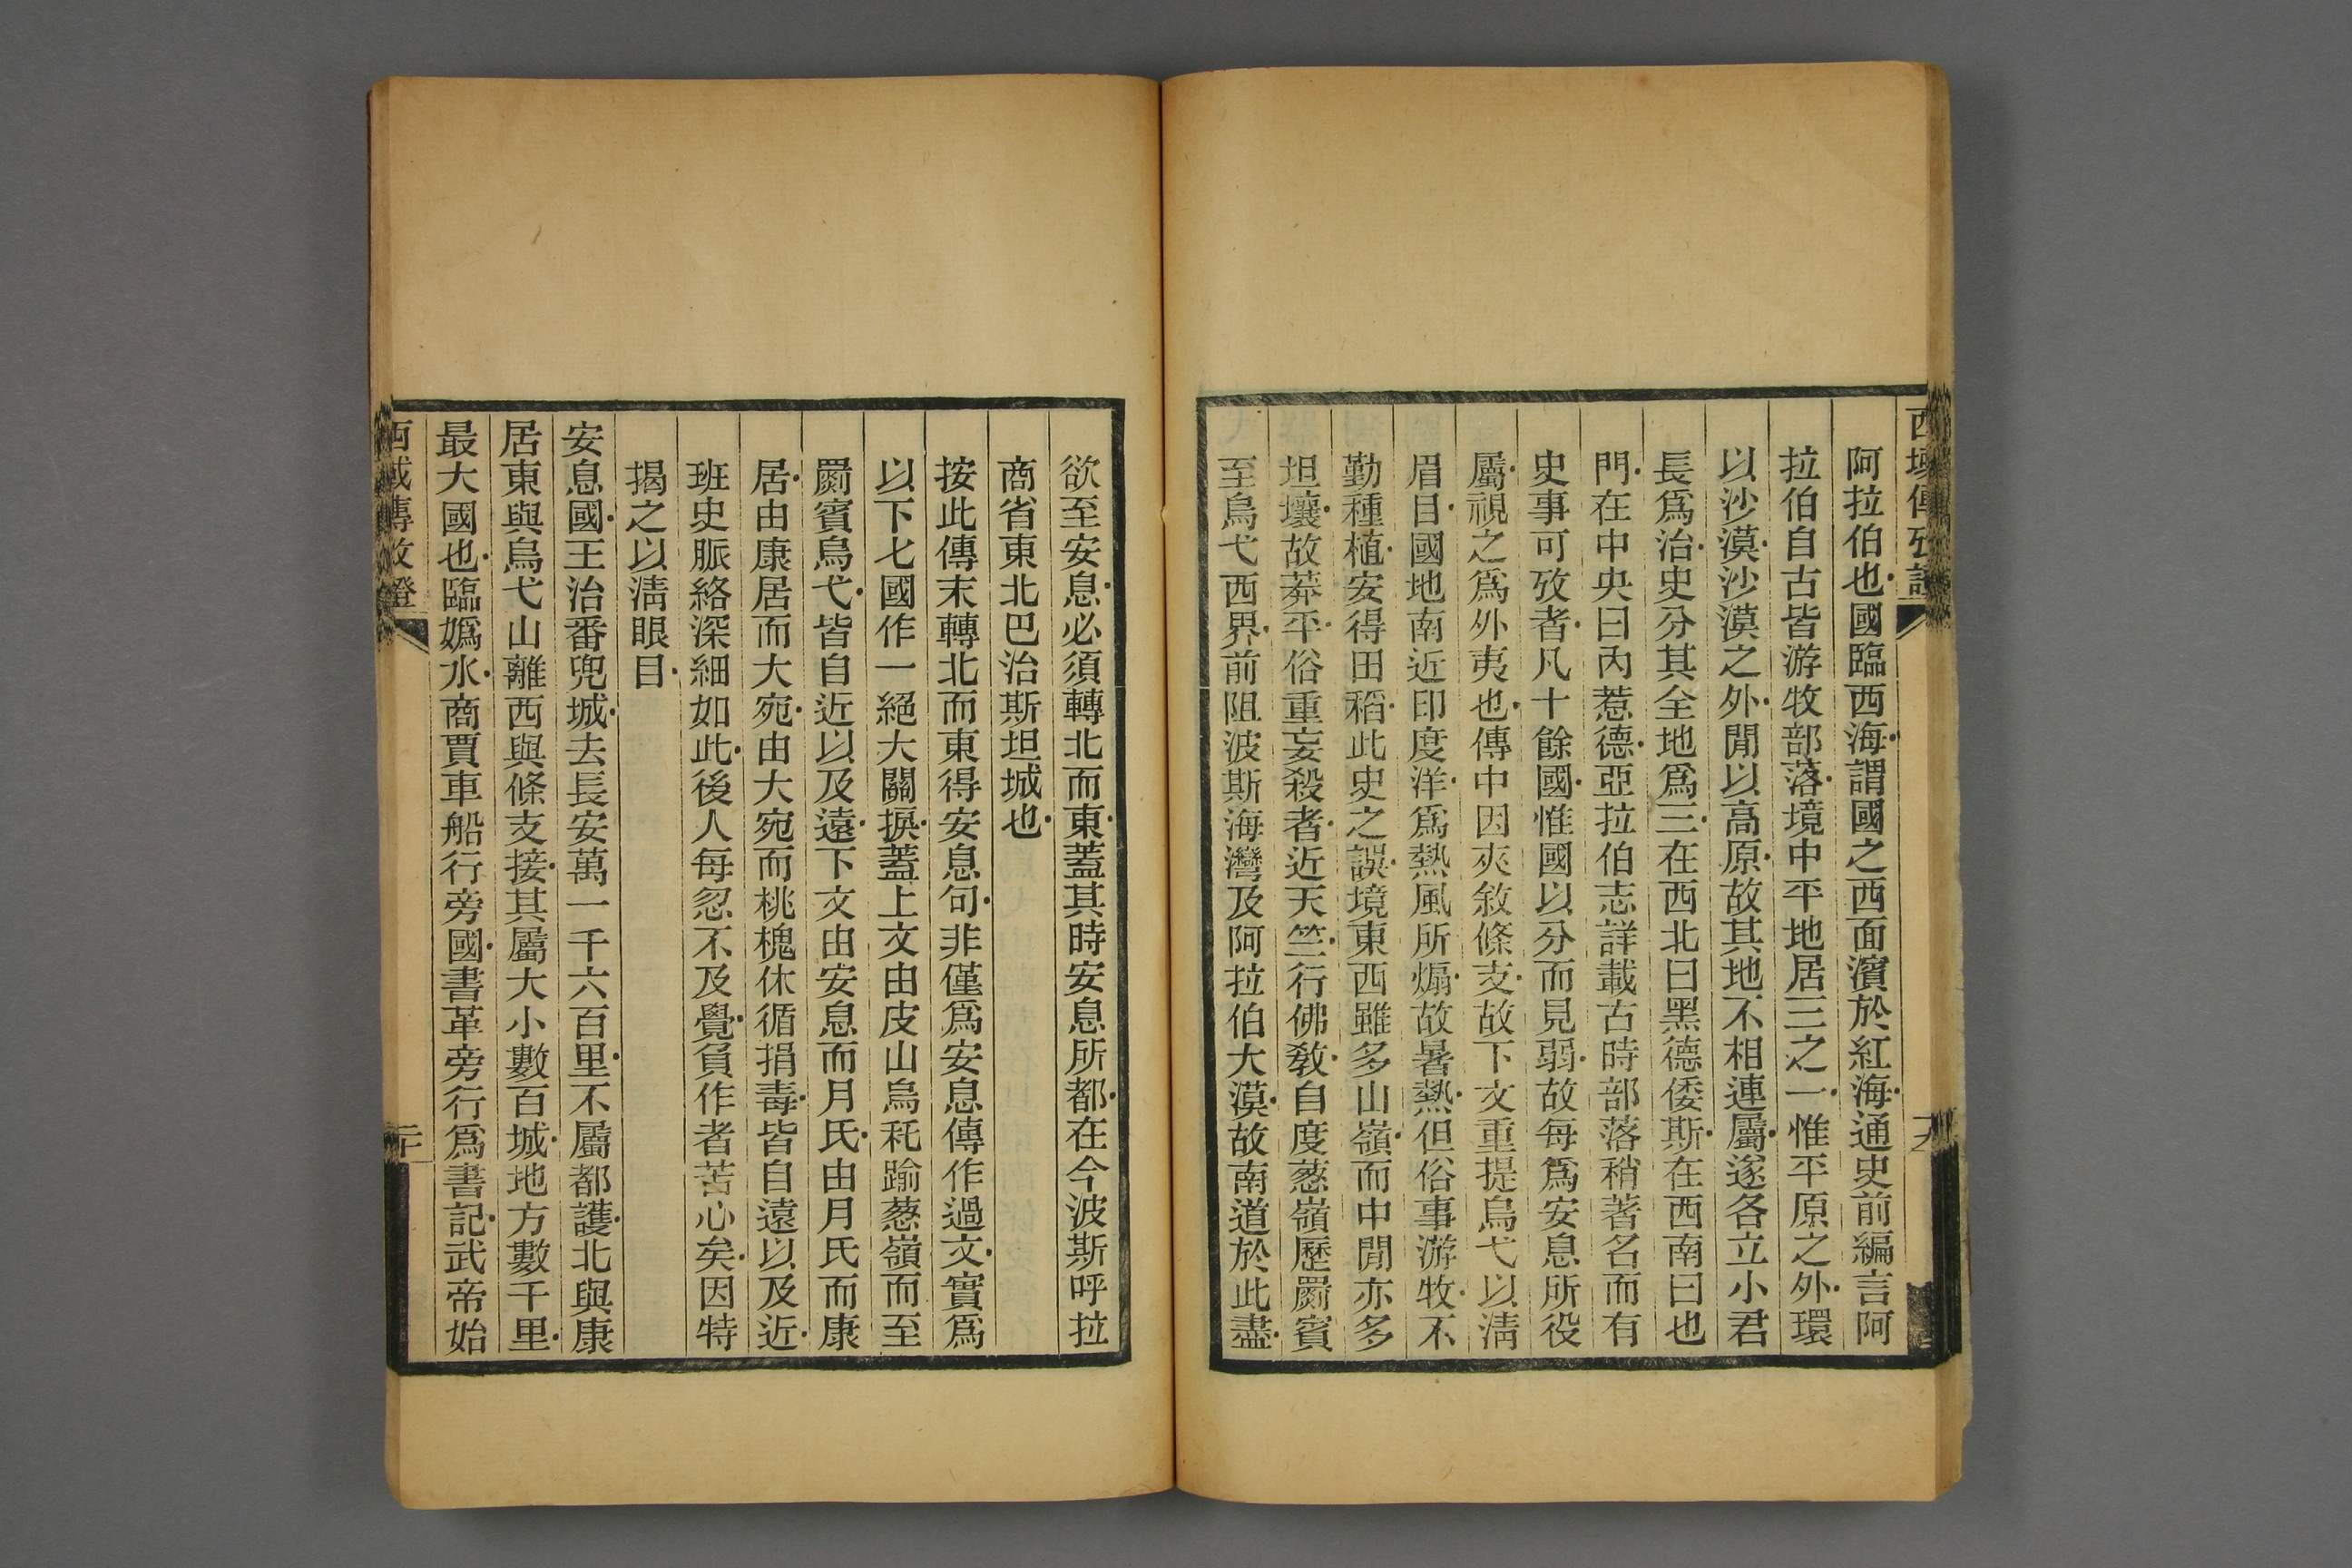 西域傳攷證
阿拉伯也國臨西海謂國之西面濱於紅海通史前編言阿
拉伯自古皆游牧部落境中平地居三之一惟平原之外環
以沙漠沙漠之外閒以高原故其地不相連屬遂各立小君
長爲治史分其全地爲三在西北曰黑德倭斯在西南曰也
門在中央曰內惹德亞拉伯志詳載古時部落稍著名而有
史事可攷者凡十餘國惟國以分而見弱故每爲安息所役
屬視之爲外夷也傳中因夾敘條支故下文重提烏弋以淸
眉目國地南近印度洋爲熱風所煽故暑熱但俗事游牧不
勤種植安得田稻此史之誤境東西雖多山嶺而中閒亦多
坦壤故莽平俗重妄殺者近天竺行佛敎自度葱嶺歷罽賓
至烏弋西界前阻波斯海灣及阿拉伯大漠故南道於此盡
欲至安息必須轉北而東蓋其時安息所都在今波斯呼拉
商省東北巴治斯坦城也
按此傳末轉北而東得安息句非僅爲安息傳作過文實爲
以下七國作一絕大關捩蓋上文由皮山烏秅踰葱嶺而至
罽賓烏弋皆自近以及遠下文由安息而月氏由月氏而康
居由康居而大宛由大宛而桃槐休循捐毒皆自遠以及近
班史脈絡深細如此後人每忽不及覺負作者苦心矣因特
揭之以淸眼目
安息國王治番兜城去長安萬一千六百里不屬都護北與康
居東與烏弋山離西與條支接其屬大小數百城地方數千里
最大國也臨嬀水商賈車船行旁國書革旁行爲書記武帝始
西域傳攷證
二十